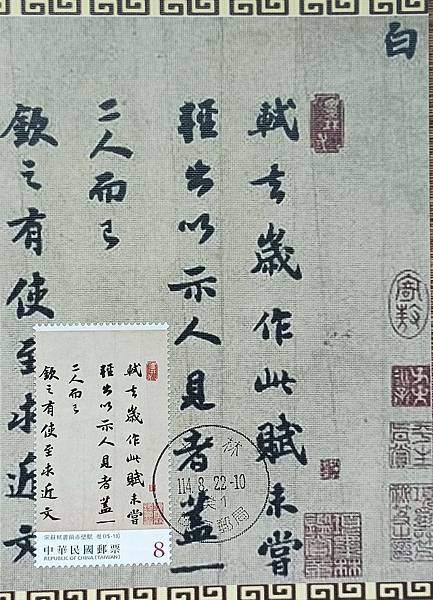 白
軾去歲作此賦未嘗
輕出以示人見者蓋一
二人而已
欽之有使至求近文
軾去歲作此賦未嘗
輕出以示人見者蓋一
二人而已
欽之有使至求近文
宋蘇軾書前赤壁賦
中華民國郵票
REPUBLIC OF CHINA (TAIWAN)
8
114.8.22-10
郵局